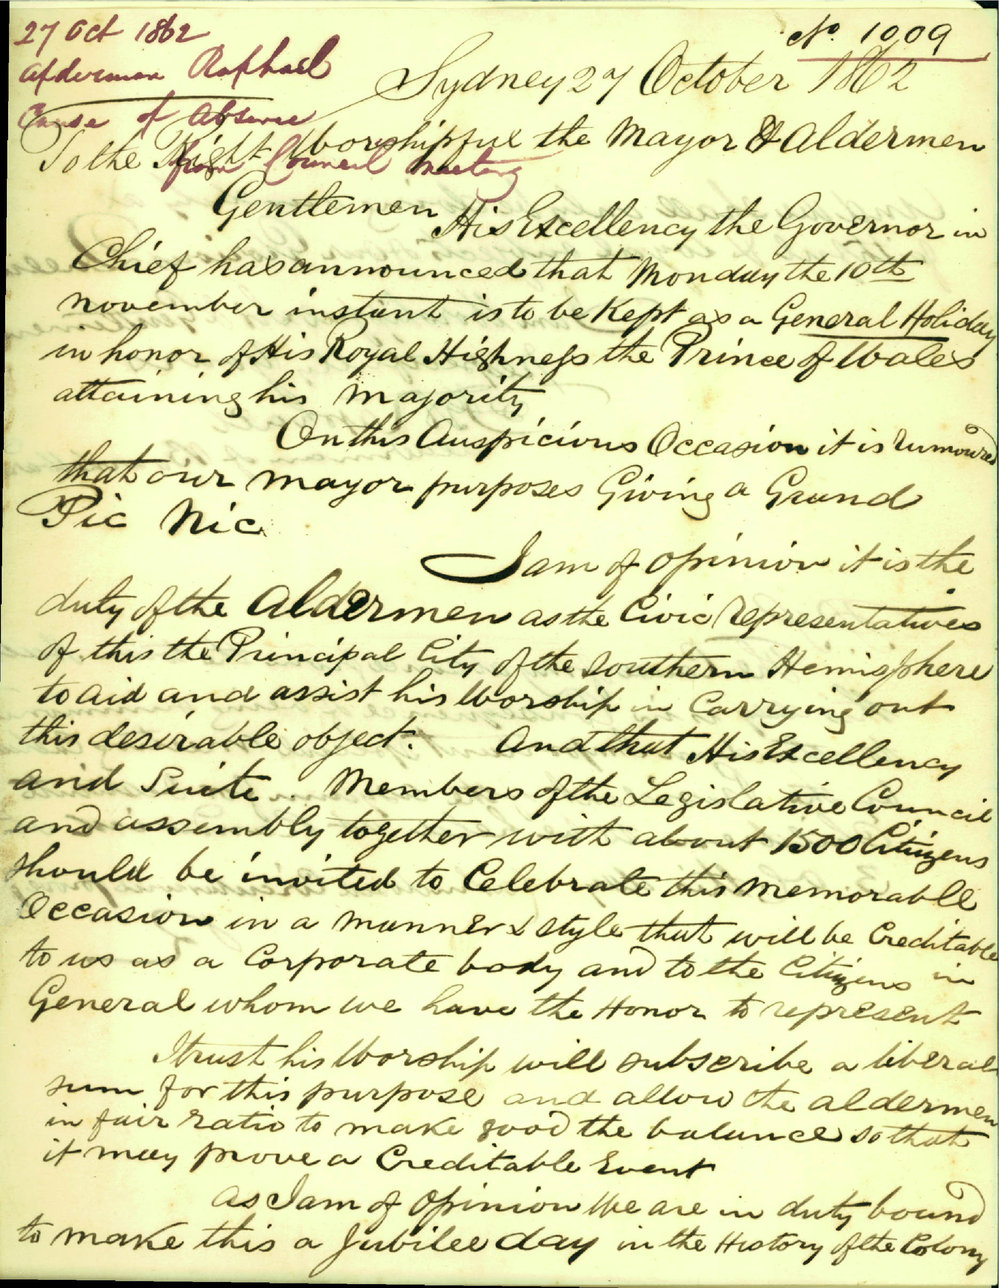 27 Oct 1862
Alderman Raphael
Cause of Absence
from Council Meeting
No. 1009
Sydney 27 October 1862
To the Right Worshipful the Mayor & Aldermen
Gentlemen
His Excellency the Governor in
Chief has announced that Monday the 10th
november instant is to be Kept as a General Holiday
in honor of His Royal Highness the Prince of Wales
attaining his majority
On this Auspicious Occasion it is rumoured
that our mayor purposes Giving a Grand
Pic Nic
I am of opinion it is the
duty of the Aldermen as the Civic representatives
of this the Principal City of the Southern Hemisphere
to aid and assist his Worship in Carrying out
this desirable object. And that His Excellency
and Suite. Members of the Legislative Council
and assembly together with about 1500 Citizens
should be invited to Celebrate this memorable
Occasion in a manner & style that will be Creditable
to us as a Corporate body and to the Citizens in
General whom we have the Honor to represent
I trust his Worship will subscribe a liberal
sum for this purpose and allow the aldermen
in fair ratio to make good the balance so that
it may prove a Creditable Event
as I am of Opinion We are in duty bound
to make this a Jubilee day in the History of the Colony